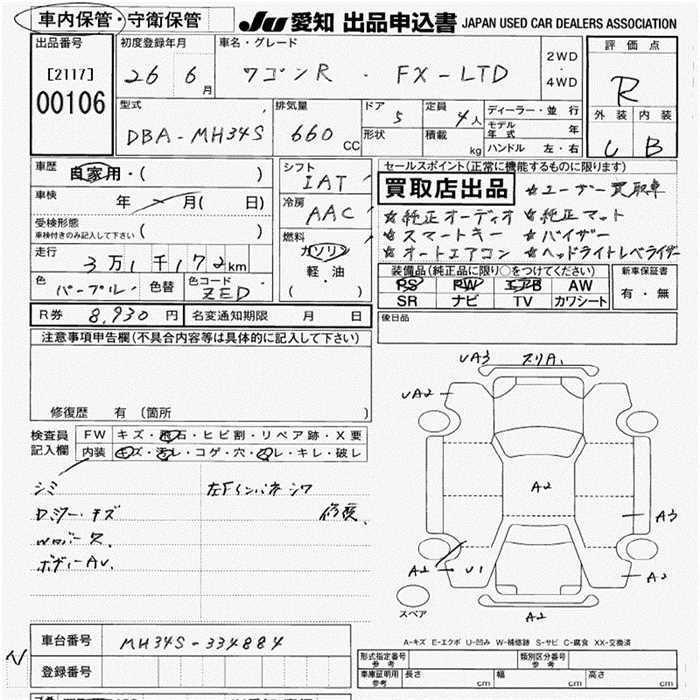 車内保管・守衛保管
JU 愛知 出品申込書 JAPAN USED CAR DEALERS ASSOCIATION
出品番号
[2117]
00106
初度登録年月
26 6月
車名・グレード
ワゴンR ・ FX-LTD
2WD
・
4WD
評価点
R
外装 内装
C B
型式
DBA-MH34S
排気量
660 CC
ドア
5
形状
定員
4人
積載
kg
ディーラー・並行
モデル年式 年
ハンドル 左・右
車歴
自家用・( )
車検
年 月( 日)
受検形態
車検付きのみ記入して下さい ( )
走行
3万1千172km
色
パープル
色替
色コード
ZED
シフト
IAT
冷房
AAC
燃料
ガソリン
軽・油
( )
セールスポイント(正常に機能するものに限ります)
買取店出品 ☆ユーザー買取車
☆純正オーディオ ☆純正マット
☆スマートキー ☆バイザー
☆オートエアコン ☆ヘッドライトレベライザー
装備品(純正品に限り○をつけてください)
PS PW エアB AW
SR ナビ TV カワシート
新車保証書
有・無
R券 8,930円
名変通知期限 月 日
後日品
注意事項申告欄(不具合内容等は具体的に記入して下さい)
修復歴 有 (箇所 )
検査員
記入欄
FW キズ・飛石・ヒビ割・リペア跡・X要
内装 キズ・汚レ・コゲ・穴・スレ・キレ・破レ
シミ 左Fインパネ シワ
ロッカー キズ 修復、
ボディーAU.
UA3 スリA1
UA2
A2
A3
A2 U1
A2
A2
スペア
A-キズ E-エクボ U-凹み W-補修跡 S-サビ C-腐食 XX-交換済
車台番号 MH34S-334884
登録番号
形式指定番号
参考
類別区分番号
参考
車庫証明用
参考
長さ cm 幅 cm 高さ cm